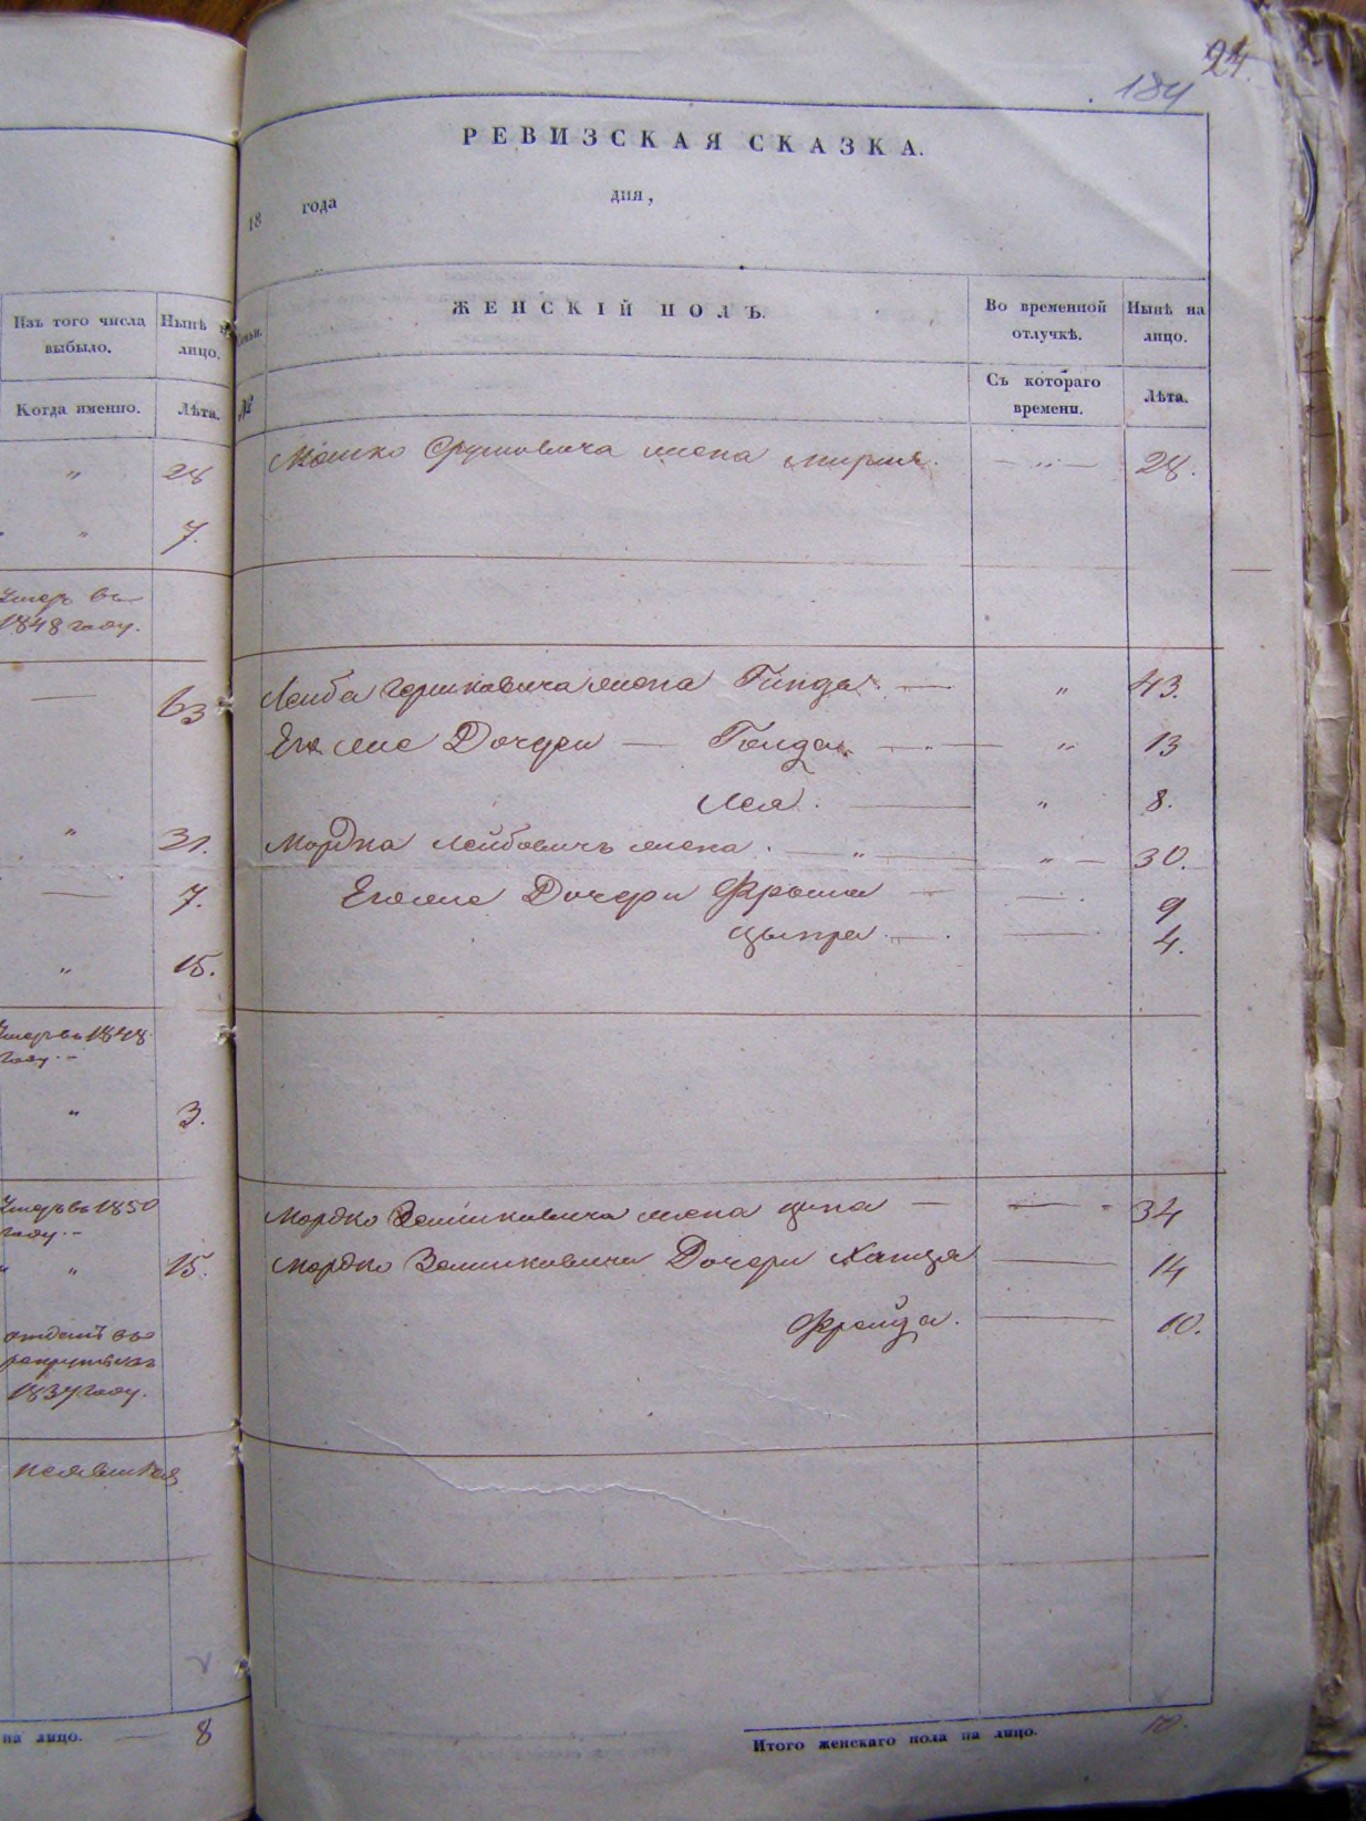 24.
184
РЕВИЗСКАЯ СКАЗКА.
18 года дня,
Изъ того числа выбыло.
Нынѣ н лицо.
Когда именно.
Лѣта.
семьи.
№
ЖЕНСКІЙ ПОЛЪ.
Во временной отлучкѣ.
Нынѣ на лицо.
Съ котораго времени.
Лѣта.
" 28
" 7.
Умеръ въ
1848 году.
— 63
" 31.
— 7.
" 15.
Умеръ въ 1848
году. -
" 3.
Умеръ въ 1850
году. -
" " 15.
отданъ въ
рекруты въ
1834 году.
неявился
на лицо. — 8
Мошко Сруловича жена Мирля. — " — 28.
Лейба Гершковича жена Гинда — " 43.
Его же Дочери — Голда — " — " 13
Лея. — " 8.
Мордка Лейбовичъ жена. — " — " — 30.
Его же Дочери Фрыма — — . 9
Цыпра. — . — 4.
Мордко Зеликовича жена Ципа — — 34
Мордко Зеликовича Дочери Ханця — 14
Фрейда. — 10.
Итого женскаго пола на лицо. 10.